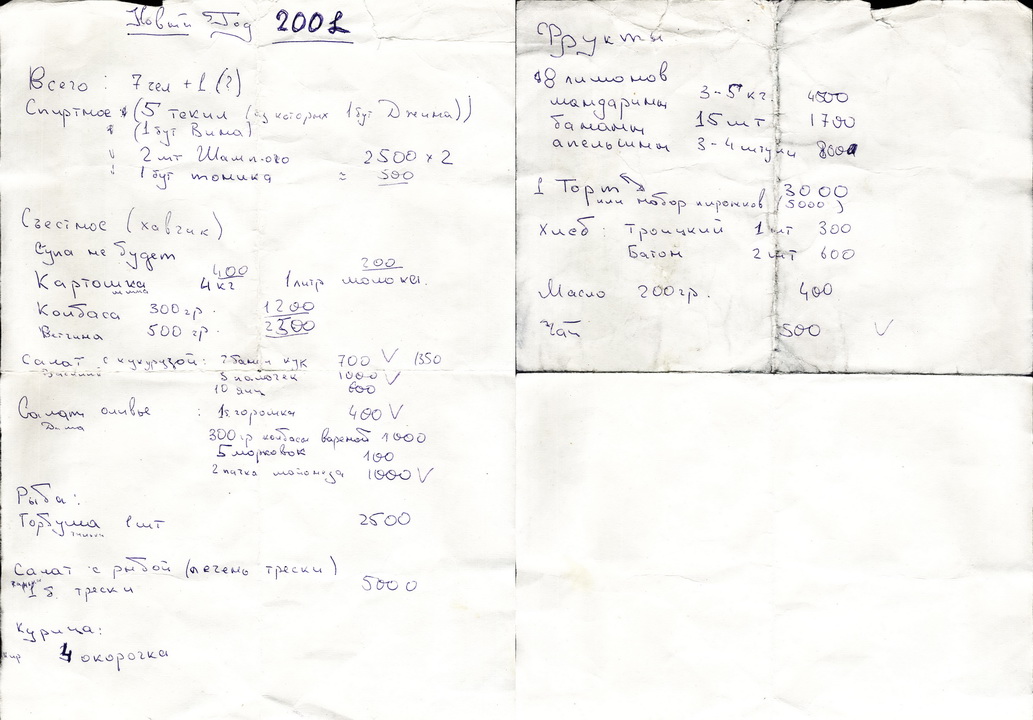 Новый Год 2001
Всего: 7 чел + 1 (?)
Спиртное (5 текил (из которых 1 бут Джина))
(1 бут Вина)
2 шт Шамп-ого 2500 x 2
1 бут тоника ≈ 500
Съестное (хавчик)
Супа не будет
400 200
Картошка 4 кг 1 литр молока.
Колбаса 300 гр. 1200
Ветчина 500 гр. 2300
Салат с кукурузой: 2 банки кук 700 V 1350
3 палочек 1000 V
10 яиц 600
Салат оливье : 1 б горошка 400 V
Дима
300 гр колбасы вареной 1000
5 морковок 100
2 пачка майонеза 1000 V
Рыба:
Горбуша 1 шт 2500
Салат с рыбой (печень трески)
1 б. трески 5000
Курица:
4 окорочка
Фрукты
8 лимонов
мандарины 3-5 кг. 4500
бананы 15 шт 1700
апельсины 3-4 штуки 800
1 Торт 3000
или набор пирожков (5000)
Хлеб: Троицкий 1 шт 300
Батон 2 шт 600
Масло 200 гр. 400
Чай 500 V